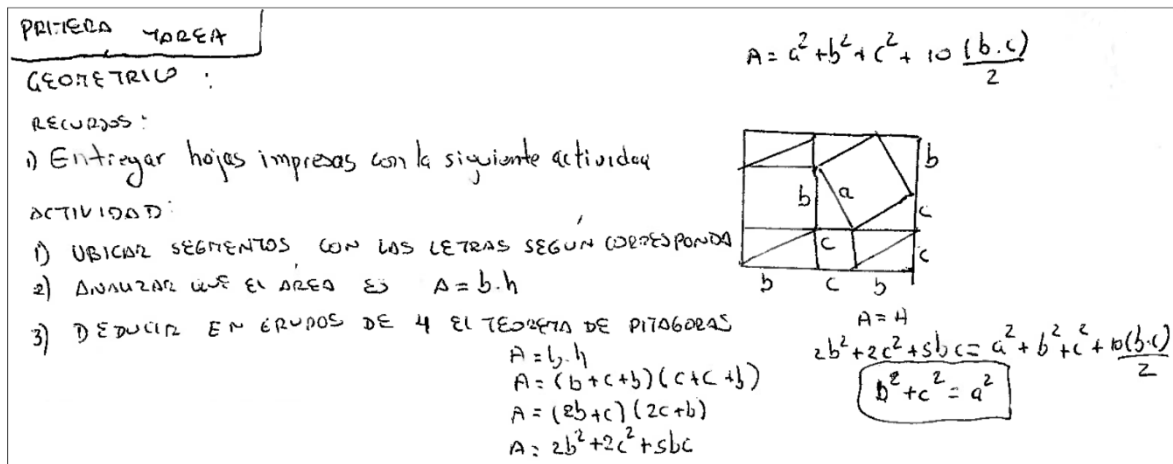 PRIMERA TAREA
GEOMETRICO :
RECURSOS:
1) Entregar hojas impresas con la siguiente actividad
ACTIVIDAD:
1) UBICAR SEGMENTOS CON LAS LETRAS SEGÚN CORRESPONDA
2) ANALIZAR QUE EL AREA ES A = b.h
3) DEDUCIR EN GRUPOS DE 4 EL TEOREMA DE PITAGORAS
A = b.h
A = (b+c+b)(c+c+b)
A = (2b+c)(2c+b)
A = 2b²+2c²+5bc
A = a²+b²+c²+ 10 (b.c)/2
b
b a
c
c c
b c b
A = A
2b²+2c²+5bc = a²+b²+c²+10(b.c)/2
b²+c²=a²